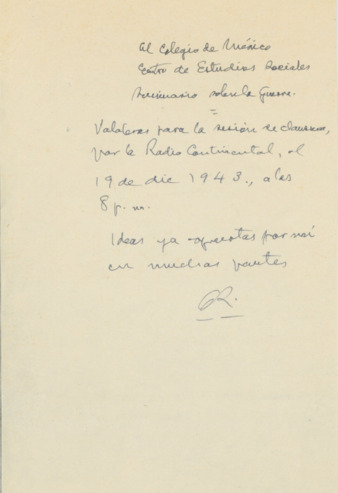 El Colegio de México
Centro de Estudios Sociales
Seminario sobre la Guerra.
=
Palabras para la sesión de clausura,
por la Radio Continental, el
19 de dic 1943., a las
8 p.m.
Ideas ya expuestas por mí
en muchas partes